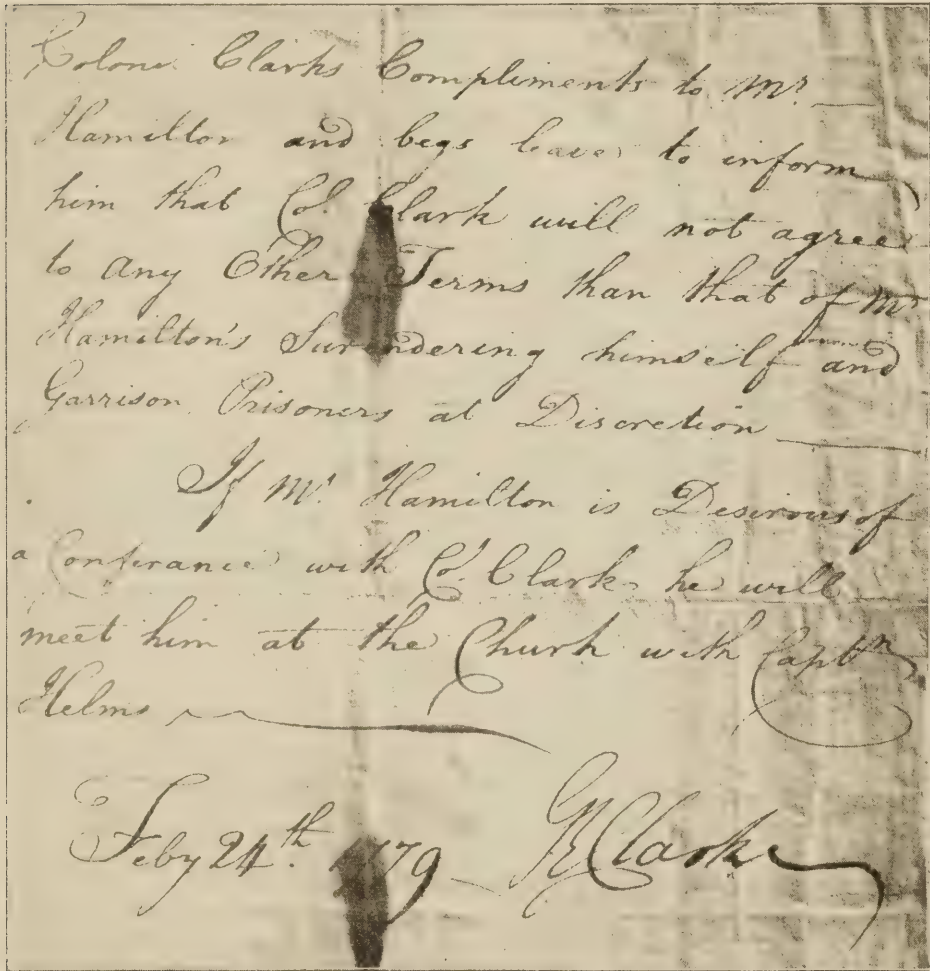 Colonel Clarks Compliments to Mr.
Hamilton and begs leave to inform
him that Col. Clark will not agree
to any Other Terms than that of Mr.
Hamilton's Surendering himself and
Garrison Prisoners at Discretion
If Mr. Hamilton is Desirous of
a Conferance with Col. Clark he will
meet him at the Church with Captn
Helms
Feby 24th. 1779 GRClark